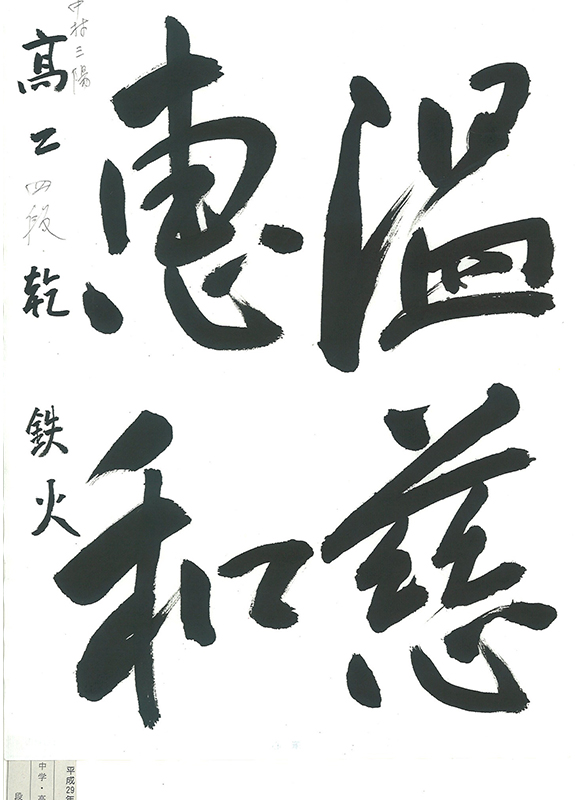 温慈
恵和
中村三陽
高二 四段 乾 鉄火
平成29年
中学・高
段